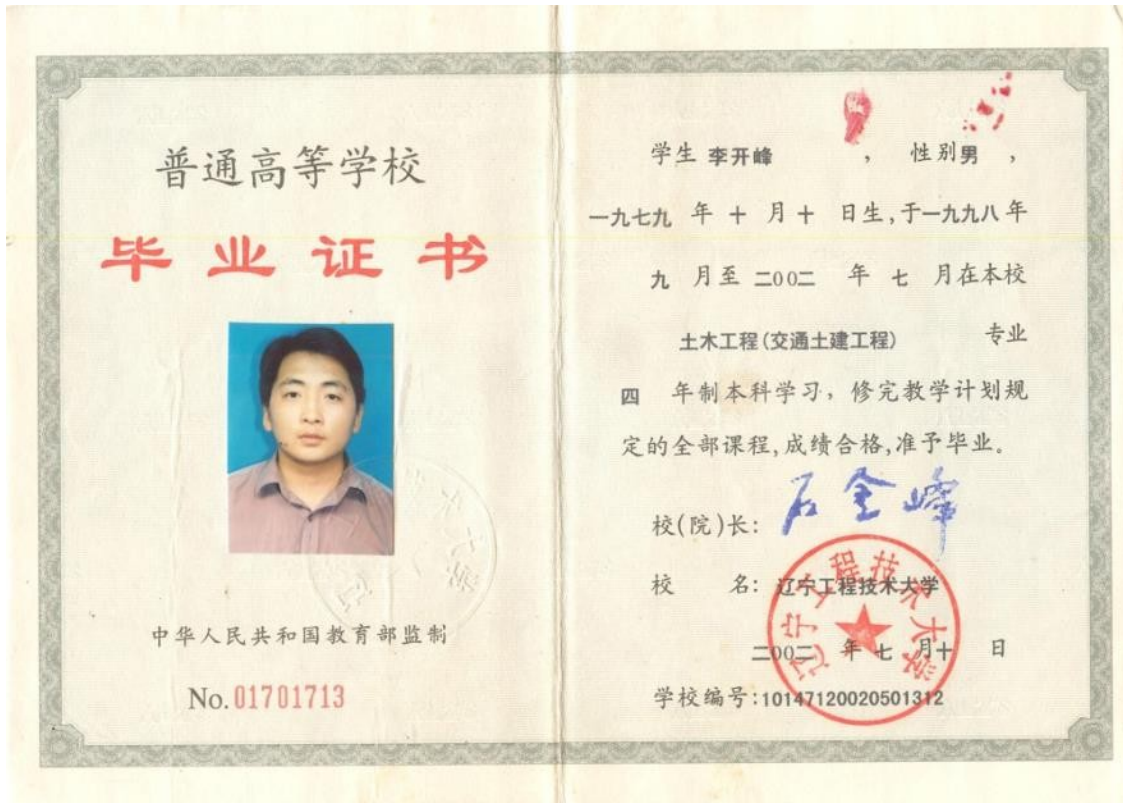 普通高等学校
毕业证书
中华人民共和国教育部监制
No.01701713
学生 李开峰 , 性别男 ,
一九七九 年 十 月 十 日生,于一九九八年
九 月至 二00二 年 七 月在本校
土木工程(交通土建工程) 专业
四 年制本科学习，修完教学计划规
定的全部课程,成绩合格,准予毕业。
校(院)长: 石金峰
校 名: 辽宁工程技术大学
辽宁工程技术大学
二00二 年 七 月十 日
学校编号:10147120020501312